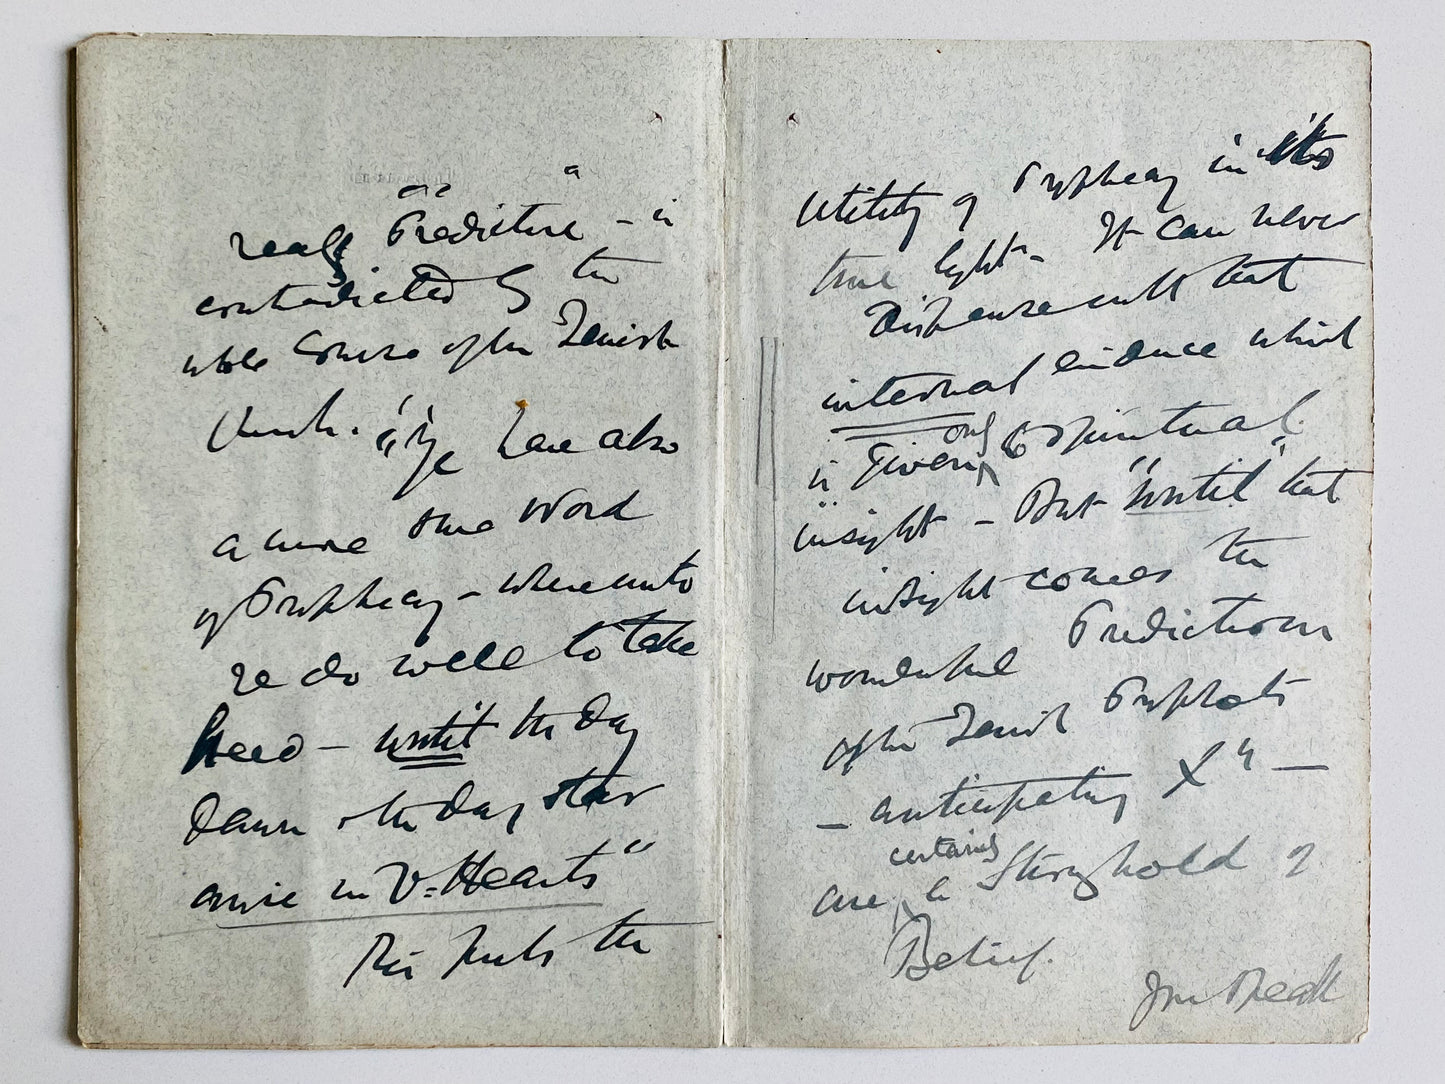 really "Predictive" - is
contradicted by the
whole course of the Jewish
Church. "Ye have also
a more sure word
of Prophecy - whereunto
ye do well to take
heed - until the day
dawn & the day star
arise in yr Hearts"
This puts the
utility of Prophecy in its
true light - It can never
Dispense with that
internal evidence which
is given only by spiritual
insight - But "until" that
insight comes the
wonderful Predictions
of the Jewish Prophets
- anticipating Xt -
are certainly a Stronghold of
Belief.